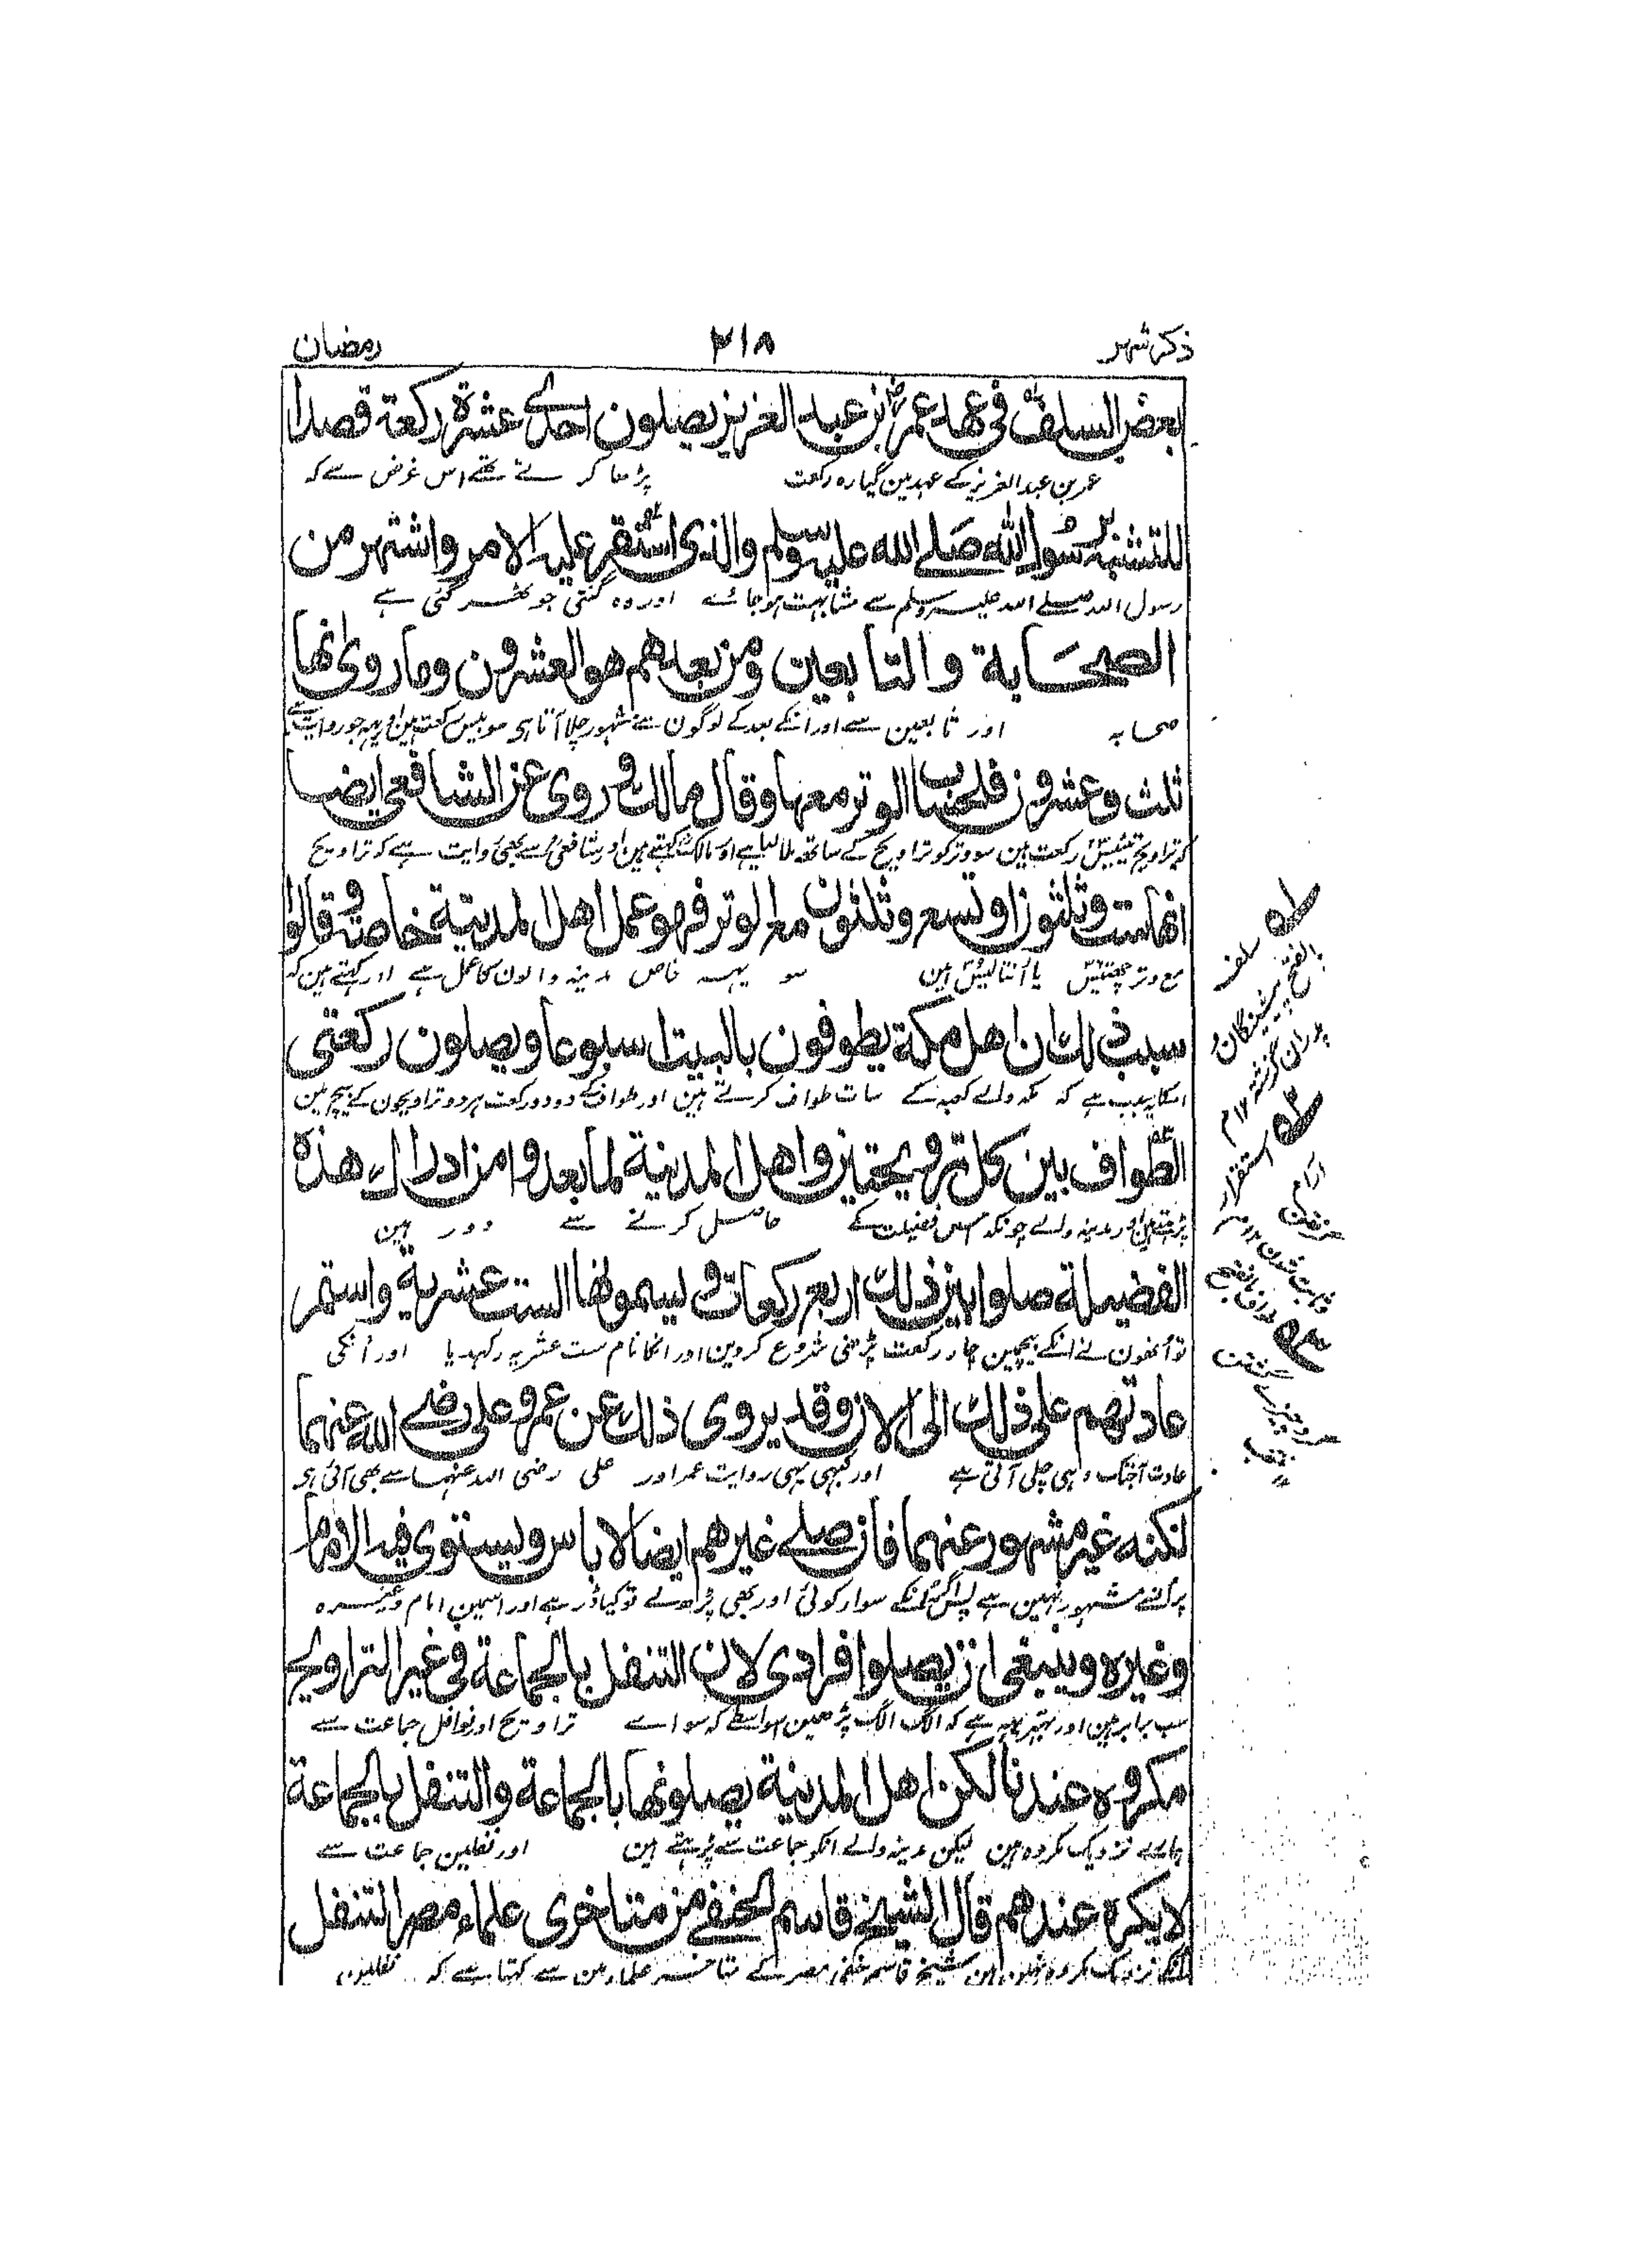 ذکر شہر ۲۱۸ رمضان
بعض السلف فی عھد عمر بن عبد العزیز یصلون احدی عشرة رکعة قصدا
عمر بن عبد العزیز کے عہد مین گیارہ رکعت پڑھا کرتے تھے اس غرض سے کہ
للتشبہ برسول الله صلے الله علیہ وسلم والذی استقر علیہ الامر واشتھر من
رسول اللہ صلے اللہ علیہ وسلم سے مشابہت ہو جائے اور وہ گنتی جو ٹھہر گئی ہے
الصحابة والتابعین ومن بعدھم ھو العشرون وما روی انھا
صحابہ اور تابعین سے اور انکے بعد کے لوگون سے مشہور چلا آتا ہی سو بیس رکعت ہین اور یہہ جو روایت ہے
ثلث وعشرون فلحساب الوتر معھا وقال مالک وروی عن الشافعی ایضا
کہ تراویح تیئیس رکعت ہین سو وتر کو تراویح کے ساتھ ملا لیا ہے اور مالک کہتے ہین اور شافعی سے بھی روایت ہے کہ تراویح
انھا ست وثلثون او تسع وثلثون مع الوتر فھو عمل اھل المدینة خاصة وقالوا
مع وتر چھتیس یا انتالیس ہین سو یہہ خاص مدینہ والون کا عمل ہے اور کہتے ہین کہ
سبب ذلک ان اھل مکة یطوفون بالبیت اسبوعا ویصلون رکعتی
اسکا یہ سبب ہے کہ مکہ والے کعبہ کے سات طواف کرتے ہین اور طواف کے دو دو رکعت ہر دو تراویحون کے بیچ مین
الطواف بین کل ترویحتین واھل المدینة لما بعدوا من ادراک ھذہ
پڑھتے ہین اور مدینہ والے چونکہ اس فضیلت کے حاصل کرنے سے دور ہین
الفضیلة صلوا بین ذلک اربع رکعات ویسمونھا الست عشریة واستمر
تو انھون نے انکے بیچ مین چار رکعت پڑھنی شروع کر دین اور انکا نام ست عشریہ رکھدیا اور انکی
عادتھم علی ذلک الی الان وقد یروی ذلک عن عمر وعلی رضی الله عنھما
عادت آجتک وہی چلی آتی ہے اور کبھی یہی روایت عمر اور علی رضی اللہ عنہما سے بھی آئی ہی
لکنہ غیر مشھور عنھما فان صلے غیرھم ایضا لا باس ویستوی فیہ الامام
پر انسے مشہور نہین ہے پس اگر انکے سوا کوئی اور بھی پڑھ لے تو کیا ڈر ہے اور اسمین امام وغیرہ
وغیرہ وینبغی ان یصلوا فرادی لان التنفل بالجماعة فی غیر التراویح
سب برابر ہین اور بہتر یہہ ہے کہ الگ الگ پڑھین اسواسطے کہ سواے تراویح اور نوافل جماعت سے
مکروہ عندنا لکن اھل المدینة یصلونھا بالجماعة والتنفل بالجماعة
ہمارے نزدیک مکروہ ہین لیکن مدینہ والے انکو جماعت سے پڑہتے ہین اور نفلین جماعت سے
لا یکرہ عندھم قال الشیخ قاسم الحنفے من متاخری علماء مصر التنفل
انکے نزدیک مکروہ نہین ہین شیخ قاسم حنفی مصر کے متاخر علما مین سے کہتا ہے کہ نفلون
سلف
بالفتح پیشینگان و
پدران گزشتہ ۱۲ م
استقرار
آرام
گرفتن